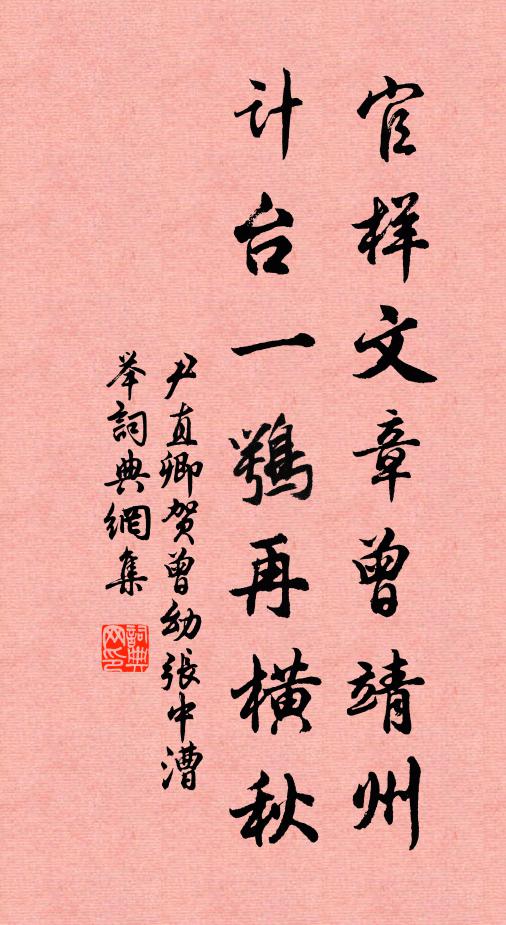 官样文章曾靖州
计台一鶚再横秋
尹直卿贺曾幼張中漕
举詞典網集
詞典
网印